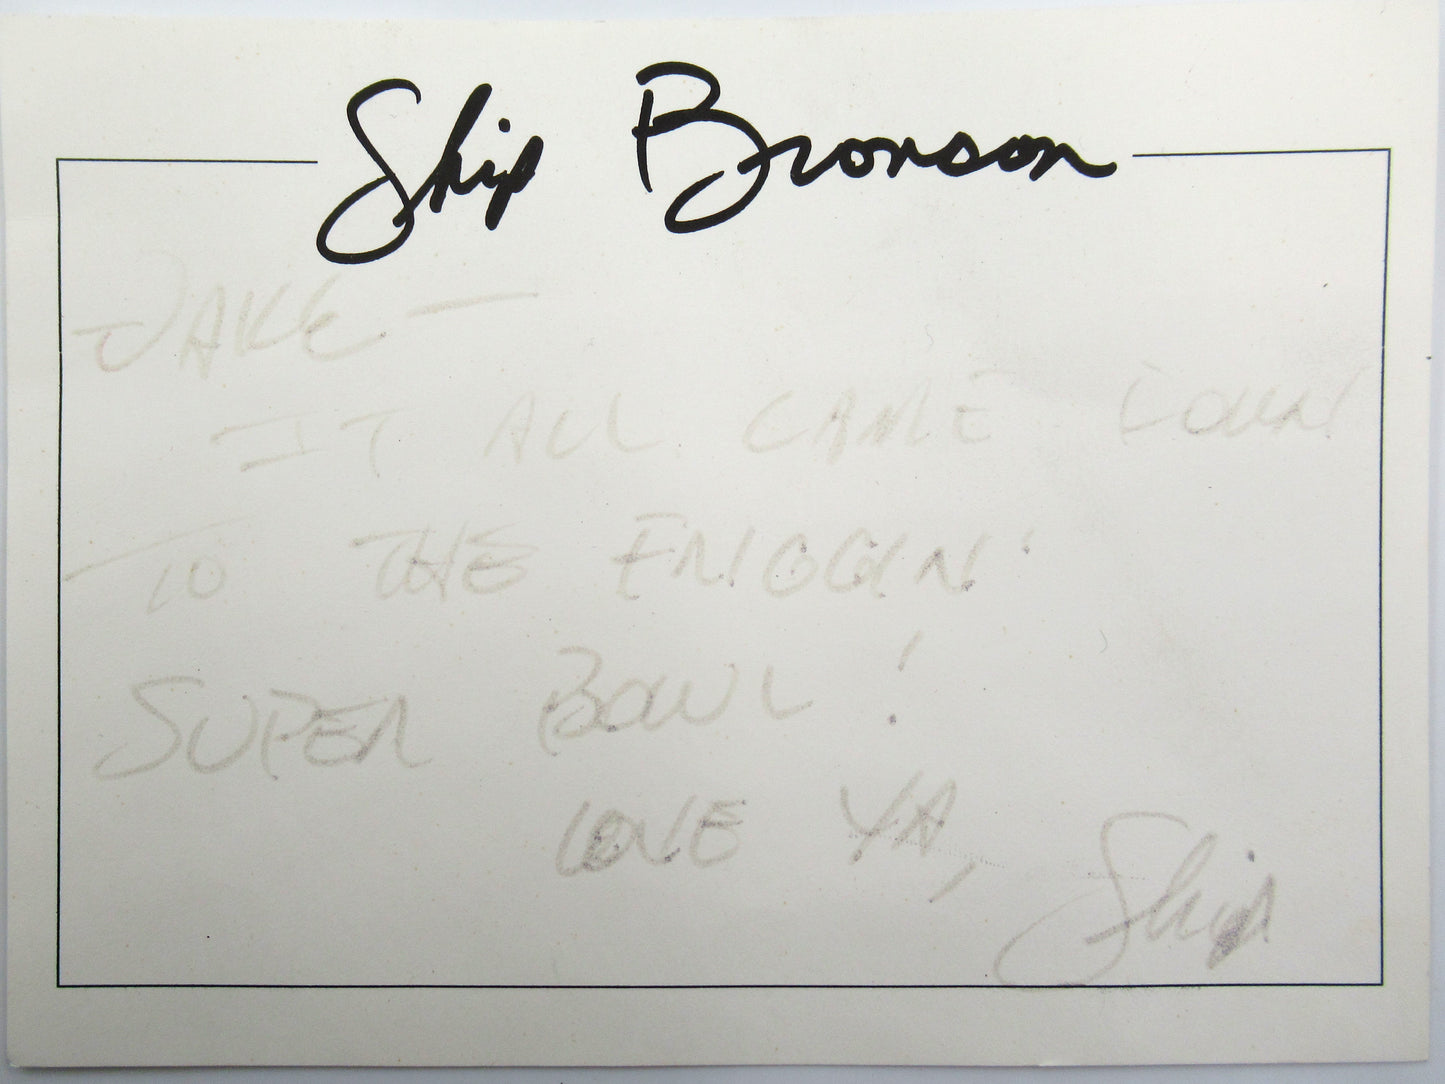 Skip Bronson
JAKE —
IT ALL CAME DOWN
TO THE FRIGGIN'
SUPER BOWL!
LOVE YA,
Skip